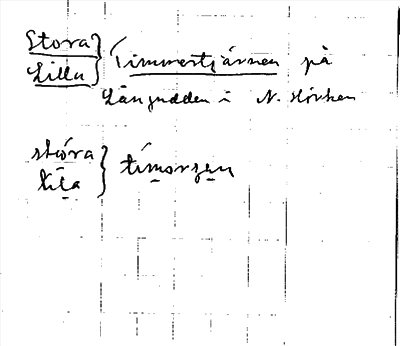 Stora
Lilla } Timmertjärnen på
Långudden i N. Hörken
stóra
lila } tímorzen